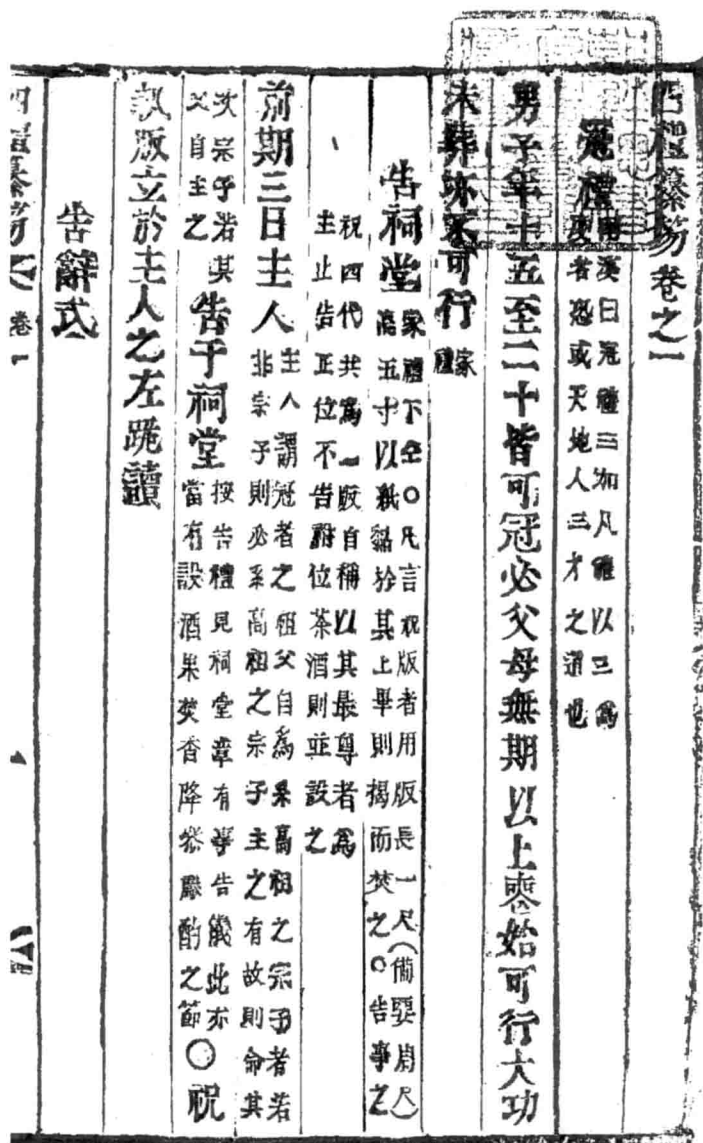 四禮纂笏卷之一
冠禮
溪曰冠禮三加凡禮以三爲
者恐或天地人三才之道也
男子年十五至二十皆可冠必父母無期以上喪始可行大功
未葬亦不可行
家禮
告祠堂
家禮下仝○凡言祝版者用版長一尺(備要周尺)
高五寸以紙黏於其上畢則揭而焚之○告事之
祝四代共爲一版自稱以其最尊者爲
主止告正位不告祔位茶酒則並設之
前期三日主人
主人謂冠者之祖父自爲系高祖之宗子者若
非宗子則必系高祖之宗子主之有故則命其
次宗子若其
父自主之
告于祠堂
按告禮見祠堂章有事告儀此亦
當有設酒果焚香降參獻酌之節
○祝
執版立於主人之左跪讀
告辭式
四禮纂笏 卷一